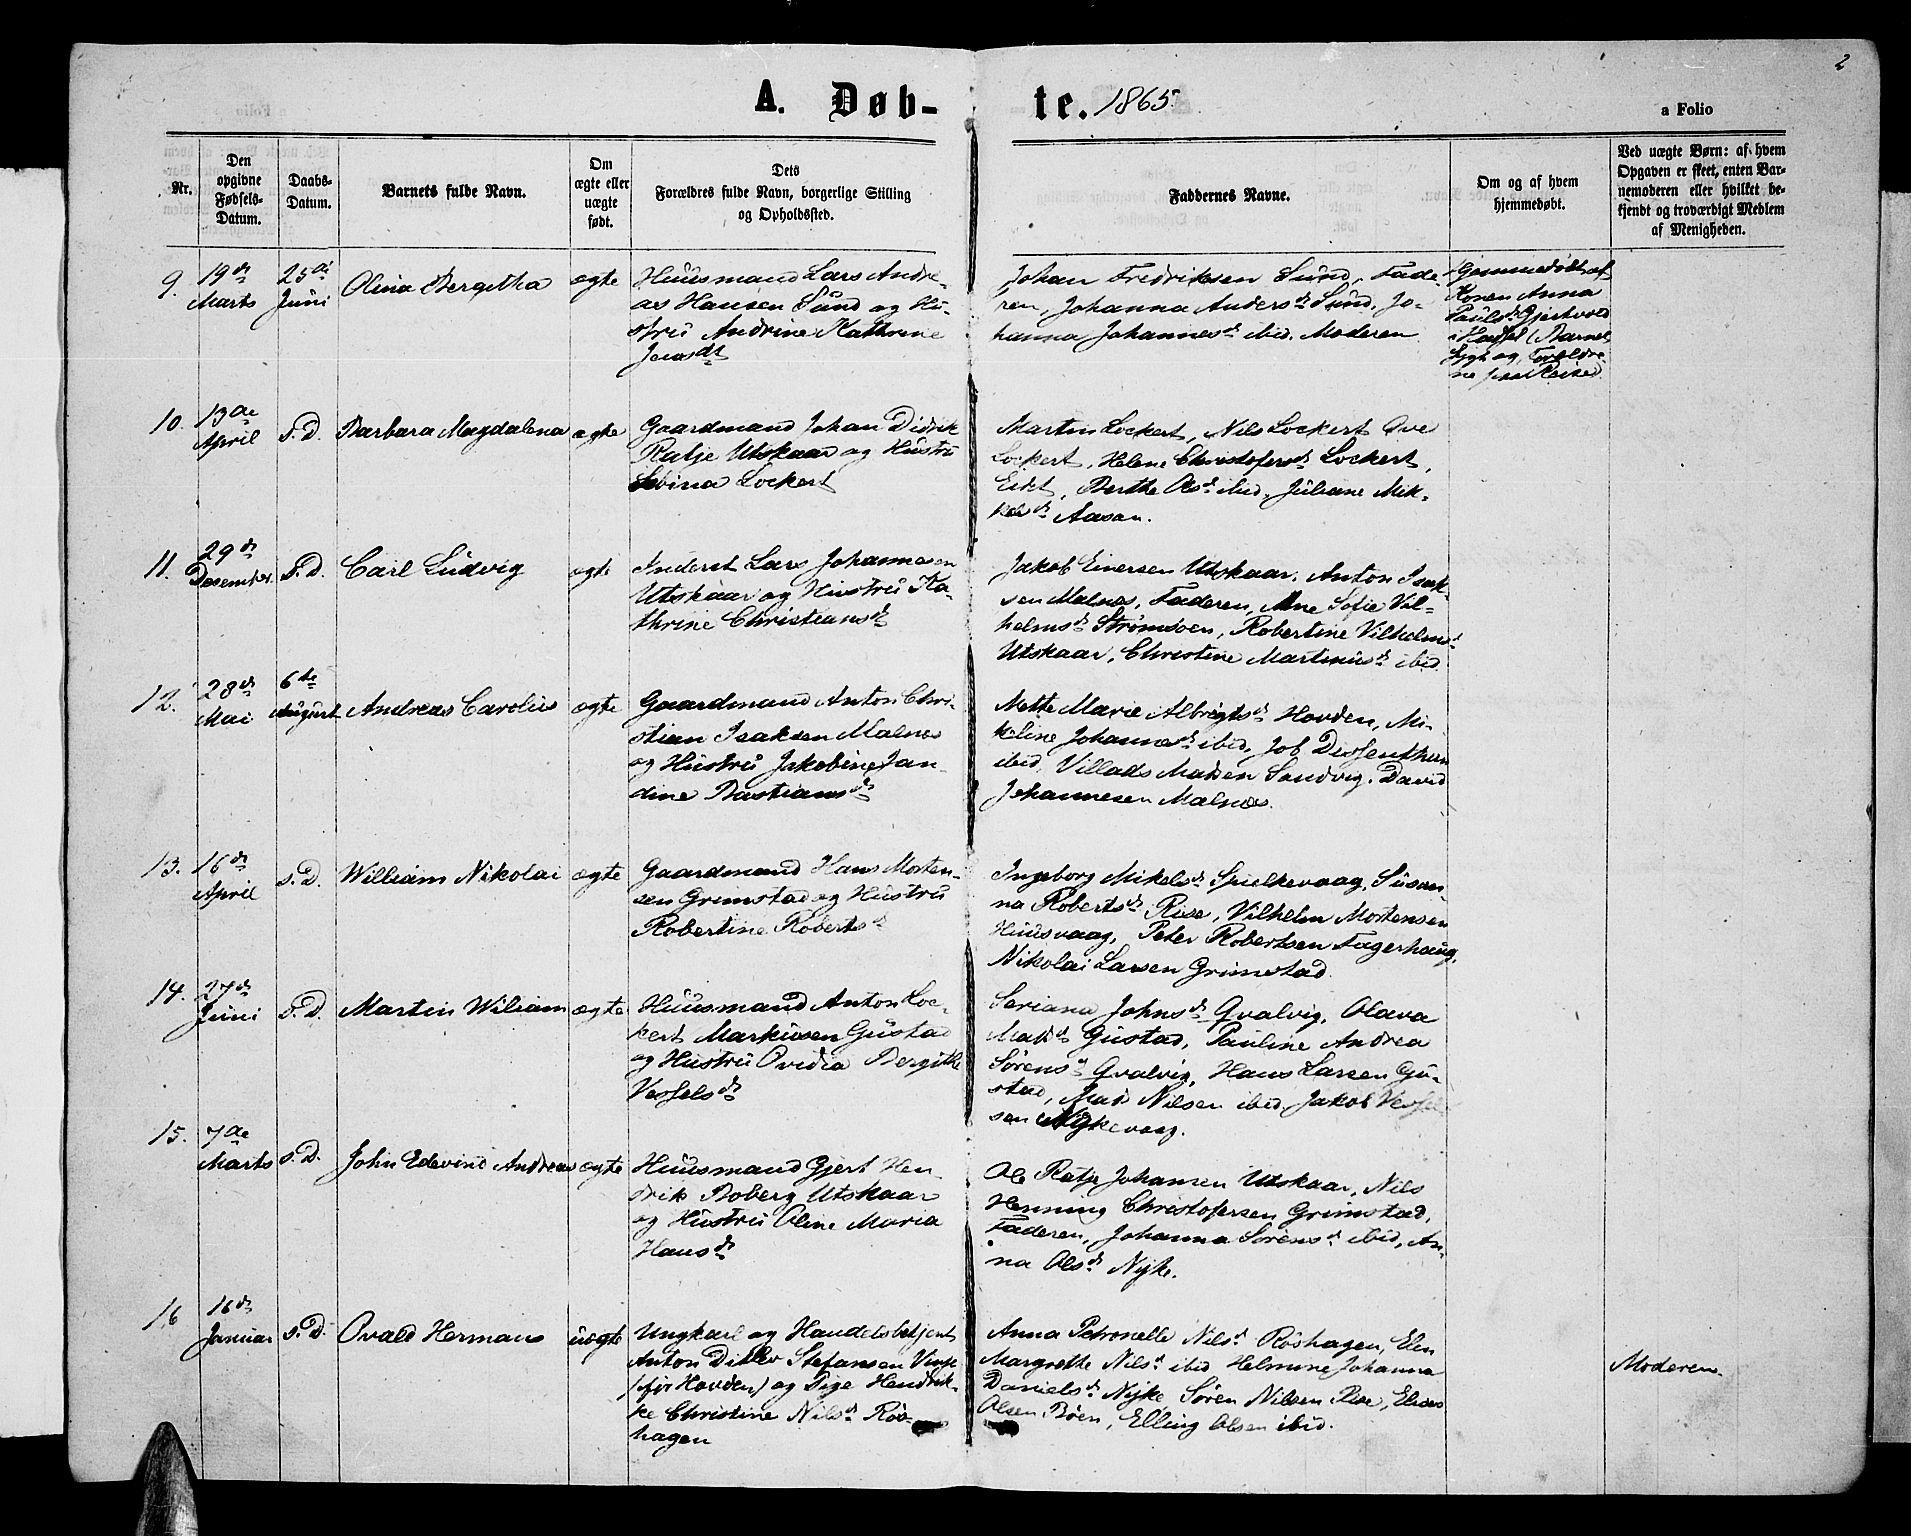 2
A. Døb- te. 1865.
a Folio
Nr.
Den opgivne Fødsels-Datum.
Daabs-Datum.
Barnets fulde Navn.
Om ægte eller uægte født.
Dets
Forældres fulde Navn, borgerlige Stilling
og Opholdssted.
Faddernes Navne.
Om og af hvem
hjemmedøbt.
Ved uægte Børn: af hvem
Opgaven er skeet, enten Bar-
nemoderen eller hvilket be-
kjendt og troværdigt Medlem
af Menigheden.
9. 19de Marts 25de Juni Olina Bergitha ægte
Huusmand Lars Andre-
as Hansen Sund og Hu-
stru Andrine Kathrine
Jensdt
Johan Fredriksen Sund, Fade-
ren, Johanna Andersd Sund, Jo-
hanna Johannesd ibid. Moderen
Hjemmedøbt af
Konen Anna
Paulsd Gjertvold
i Hassel (Barnet
sygt og Forældre-
ne paa Reise)
10. 13de April s.D. Barbara Magdalena ægte
Gaardmand Johan Didrik
Ratje Utskaar og Hustru
Lovina Lockert
Martin Lockert, Nils Lockert Ove
Lockert, Helene Christofersd Lockert,
Eidet, Berthe Olsd ibid, Juliane Mik-
kelsd Aasan.
11. 29de Desember s.D. Carl Ludvig ægte
Inderst Lars Johannesen
Utskaar og Hustru Ka-
thrine Christiansd
Jakob Einersen Utskaar, Anton Isak-
sen Malnes, Faderen, Ane Sofie Vil-
helmsd Strømsøen, Robertine Vilhelmsd
Utskaar, Christine Martinusd ibid
12. 28de Mai 6te August Andreas Carolius ægte
Gaardmand Anton Chri-
stian Isaksen Malnes
og Hustru Jakobine Jan-
dine Bastiansd
Mette Marie Albrigtsd Hovden, Mi-
keline Johannesd ibid, Job Dessenthun
ibid, Villads Madsen Sandvig, David
Johannesen Malnes.
13. 16de April s.D. William Nikolai ægte
Gaardmand Hans Morten-
sen Grimstad og Hustru
Robertine Robertsd
Ingeborg Mikelsd Spielkevaag, Susan-
na Robertsd Rise, Vilhelm Mortensen
Huusvaag, Peter Robertsen Fagerhaug,
Nikolai Larsen Grimstad.
14. 27de Juni s.D. Martin Wiliam ægte
Huusmand Anton Loc-
kert Markusen Gustad
og Hustru Ovidia Bergithe
Vesselsd
Seriana Johnsd Qvalvig, Olava
Madsd Gustad, Pauline Andrea
Sørensd Qvalvig, Hans Larsen Gu-
stad, Mads Nilsen ibid, Jakob Vessel
sen Nykevaag.
15. 7de Marts s.D. John Edevind Andreas ægte
Huusmand Gjert Hen-
drik Boberg Utskaar
og Hustru Oline Maria
Hansd
Ole Ratje Johansen Utskaar, Nils
Henning Christofersen Grimstad,
Faderen, Johanna Sørensd ibid, An-
na Olsd Nyke.
16 16de Januar s.D. Ovald Hermans uægte
Ungkarl og Handelsbetjent
Anton Ditlev Stefansen Vinje
(før Hovden) og Pige Hendrik-
ke Christine Nilsd Røs-
hagen
Anna Petronelle Nilsd Røshagen, Elen
Margrethe Nilsd ibid Helmine Johanna
Danielsd Nyke, Søren Nilsen Rise, Elias
Olsen Bøen, Elling Olsen ibid.
Moderen.